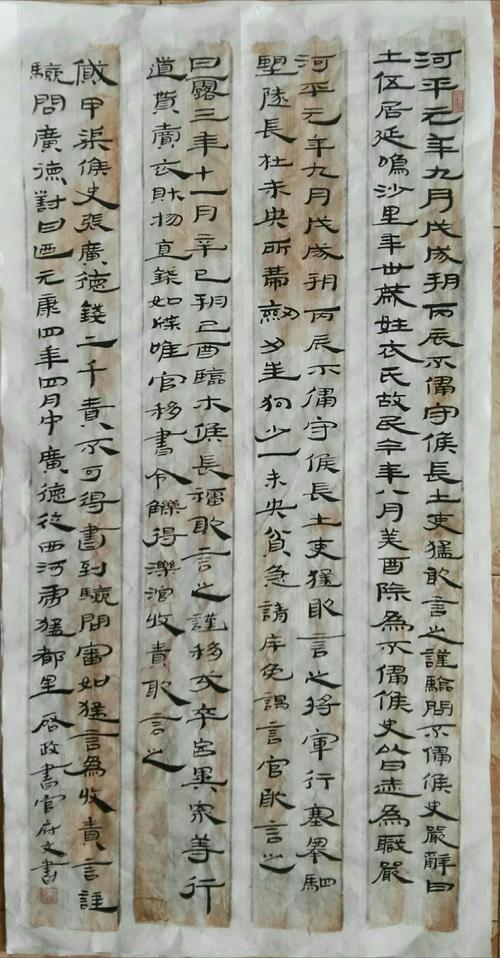 河平元年九月戊戌朔丙辰不備守候長士吏猛敢言之謹驗問不備候史嚴辭曰
士伍居延鳴沙里年卅歲姓衣氏故民今年八月癸酉除為不備候史以日迹為職嚴
河平元年九月戊戌朔丙辰不備守候長士吏猛敢言之將軍行塞舉駟
塱隧長杜未央所帶劍刃生狗少一未央貧急請序免謁言官敢言之
曰露三年十一月辛巳朔己酉臨木候長福敢言之謹移戍卒呂異眾等行
道貰賣衣財物直錢如牒唯官移書令觻得濼涫收責敢言之
貸甲渠候史張廣德錢二千責不可得書到驗問審如猛言為收責言謹
驗問廣德對曰迺元康四年四月中廣德從西河虎猛都里 啟政書官府文書